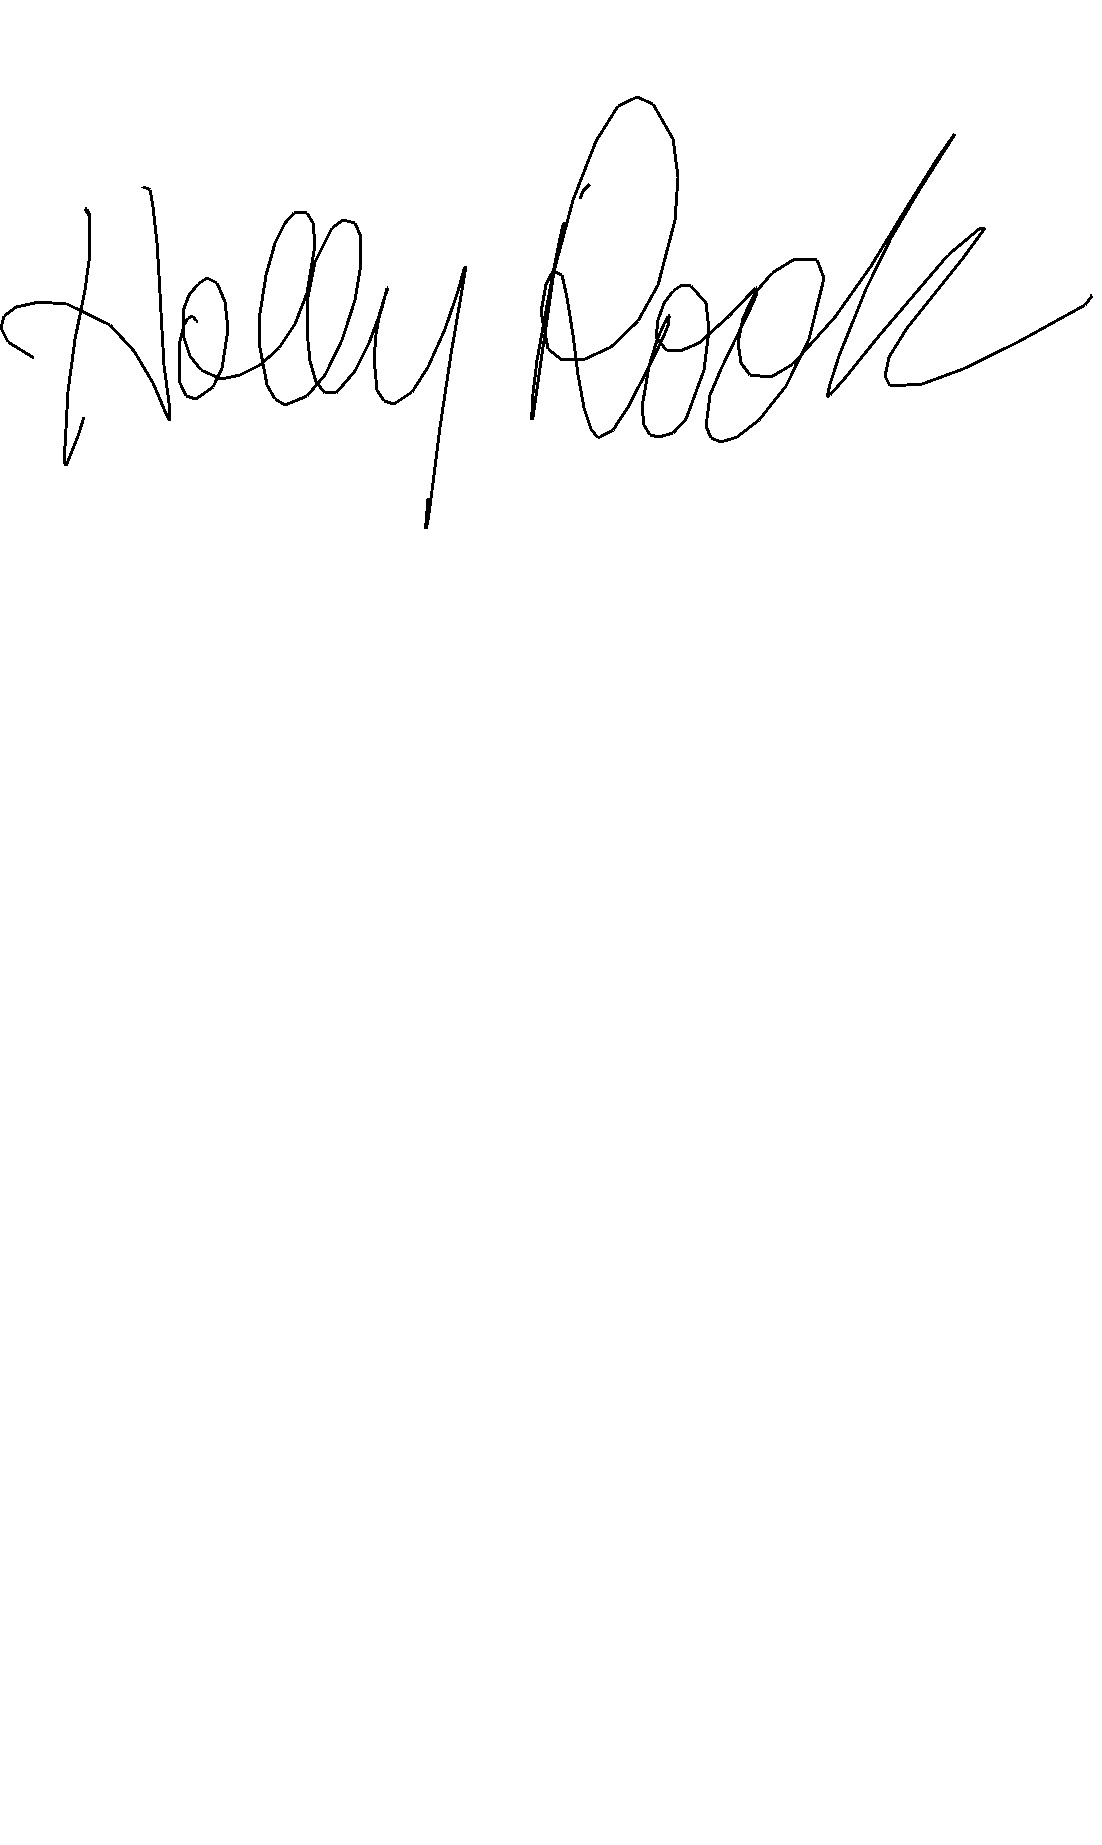 Holly Rook